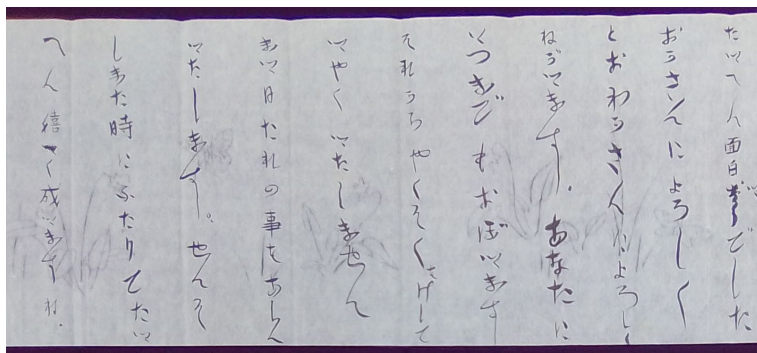 たいへん面白でした
おうさんによろしく
とおわうさんによろしく
ねがいます。あなたに
いつまでもおぼいます
それうちやくそくけして
いやくいたしません
まい日たれの事をあしん
いたします。せんそ
しまた時にふたりでたい
へん嬉く成いますね.